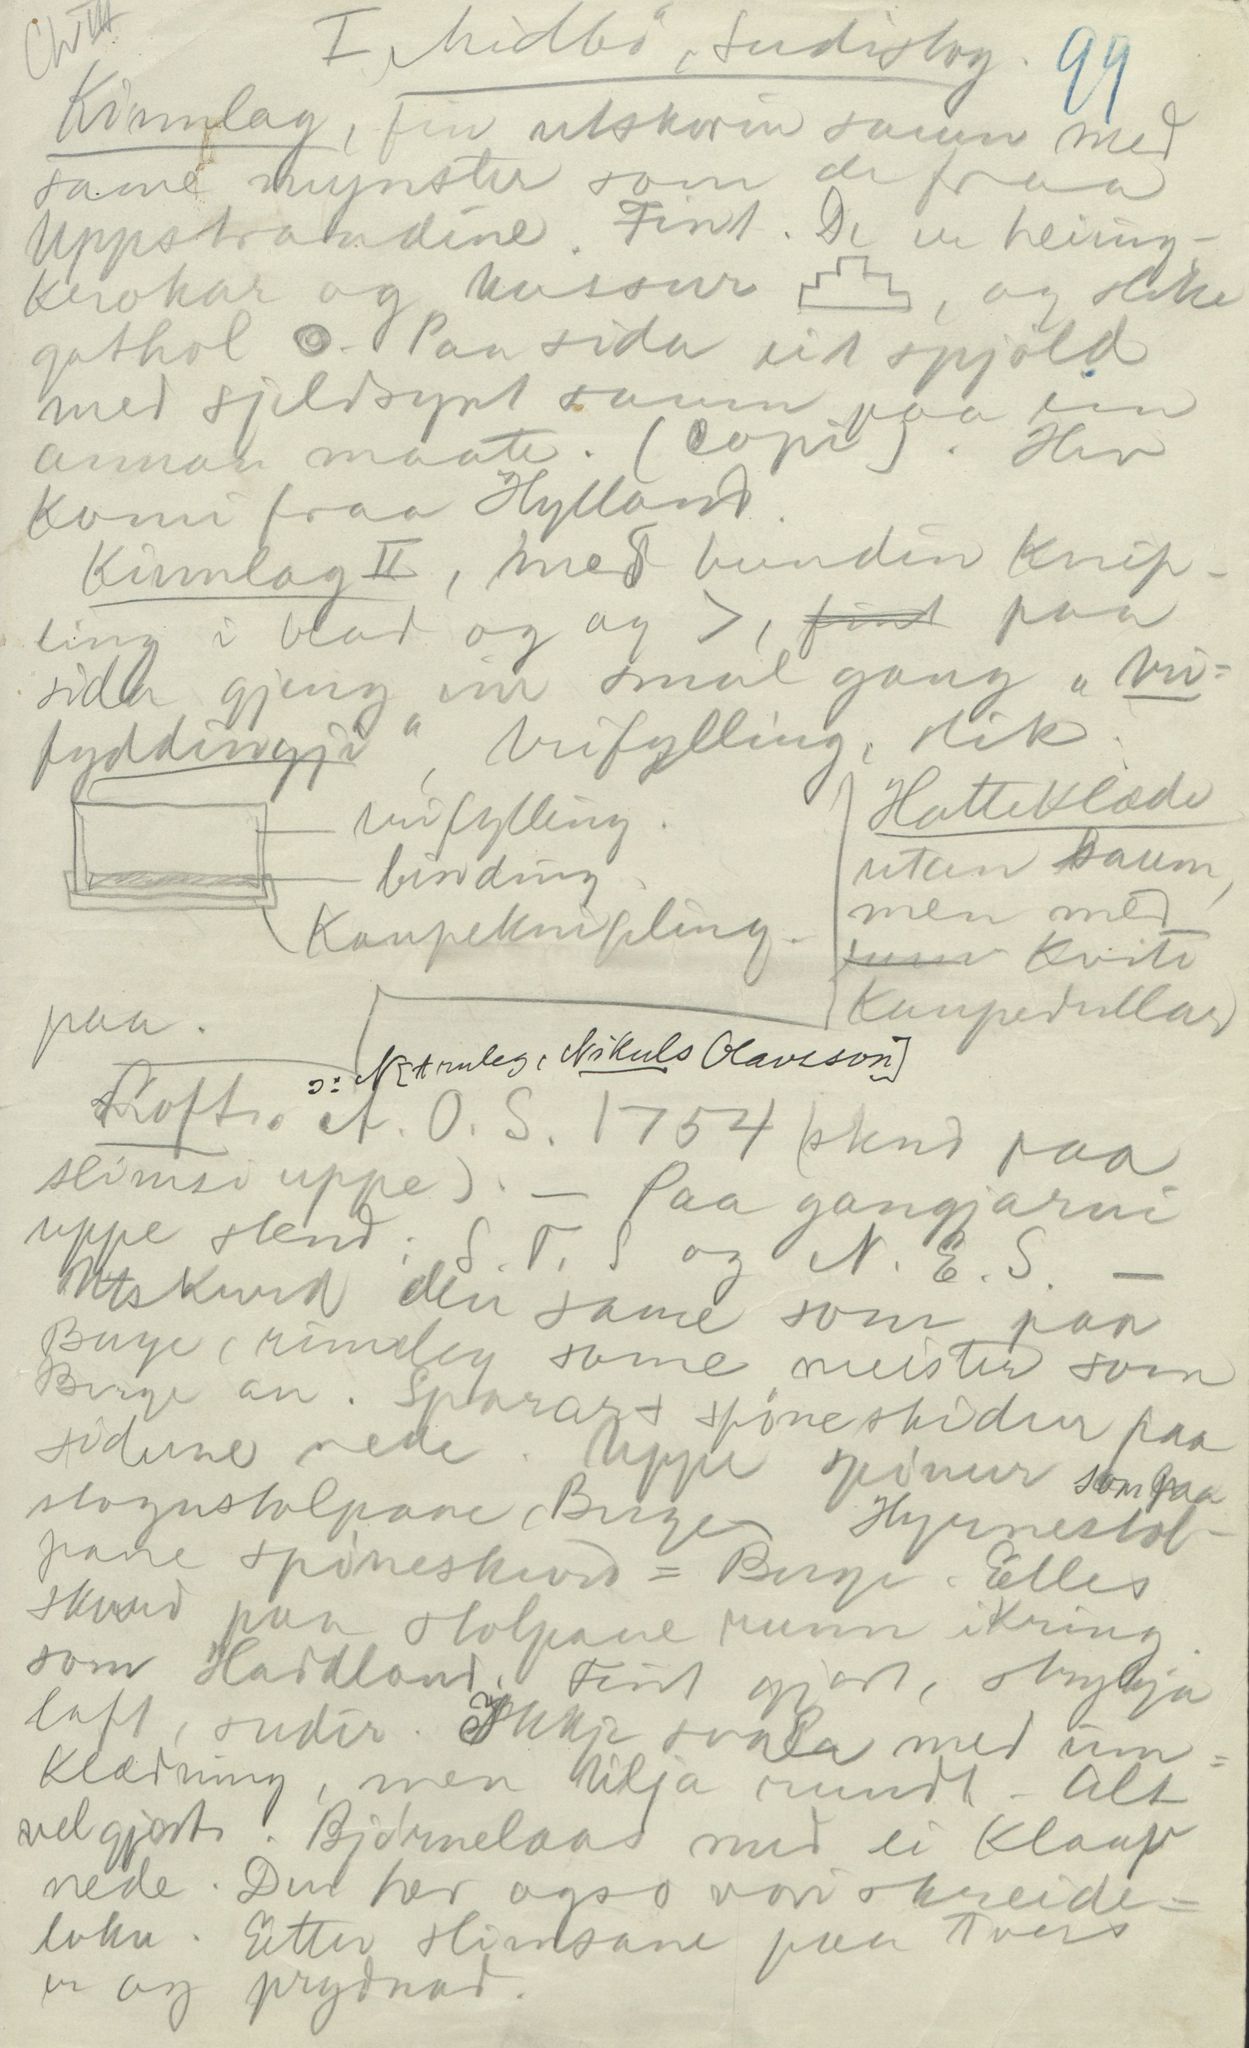 I „Midbö", Sudistog. 99
Kinnlag, fin utskorin saum med
same mynster som de fraa
Uppstrondine. Fint. De er heiing-
krokar og krossur, og slike
gathol. Paa sida eit spjöld
med sjeldsynt saum paa ein
annan maate. (Copi). Her
komi fraa Hylland.
Kinnlag II, med bundin knip-
ling i blad og og >, fint paa
sida gjeng ein smal gang „vri-
fyddingji", vrifylling, slik.
vrifylling.
binding.
Kaupeknipling.
Hatteklæde
utan saum,
men med
kvite
kaupedullar
paa.
ɔ: N[emleg, Nikuls Olavsson]
Loft. N. O. S. 1754 (stend paa
slimsi uppe). — Paa gangjarni
uppe stend: S. T. S og N. E. S. —
Utskurd den same som paa
Berge, rimeleg same meister som
Berge an. Sparars spöneskidur paa
sidune nede. Uppe spönur som paa
stognstolpane, Berge. Hyrnestol-
pane spöneskurd = Berge. Elles
skurd paa stolpane runn ikring
som Haddland. Fint gjort, strykja
laft, sudir. Ikkje svala med um-
klædning, men tilja rundt. Alt
velgjort. Björnelaas med ei klaap
nede. Der her ogso vori skreide-
loku. Etter slimsane paa tvers
er og prydnad.